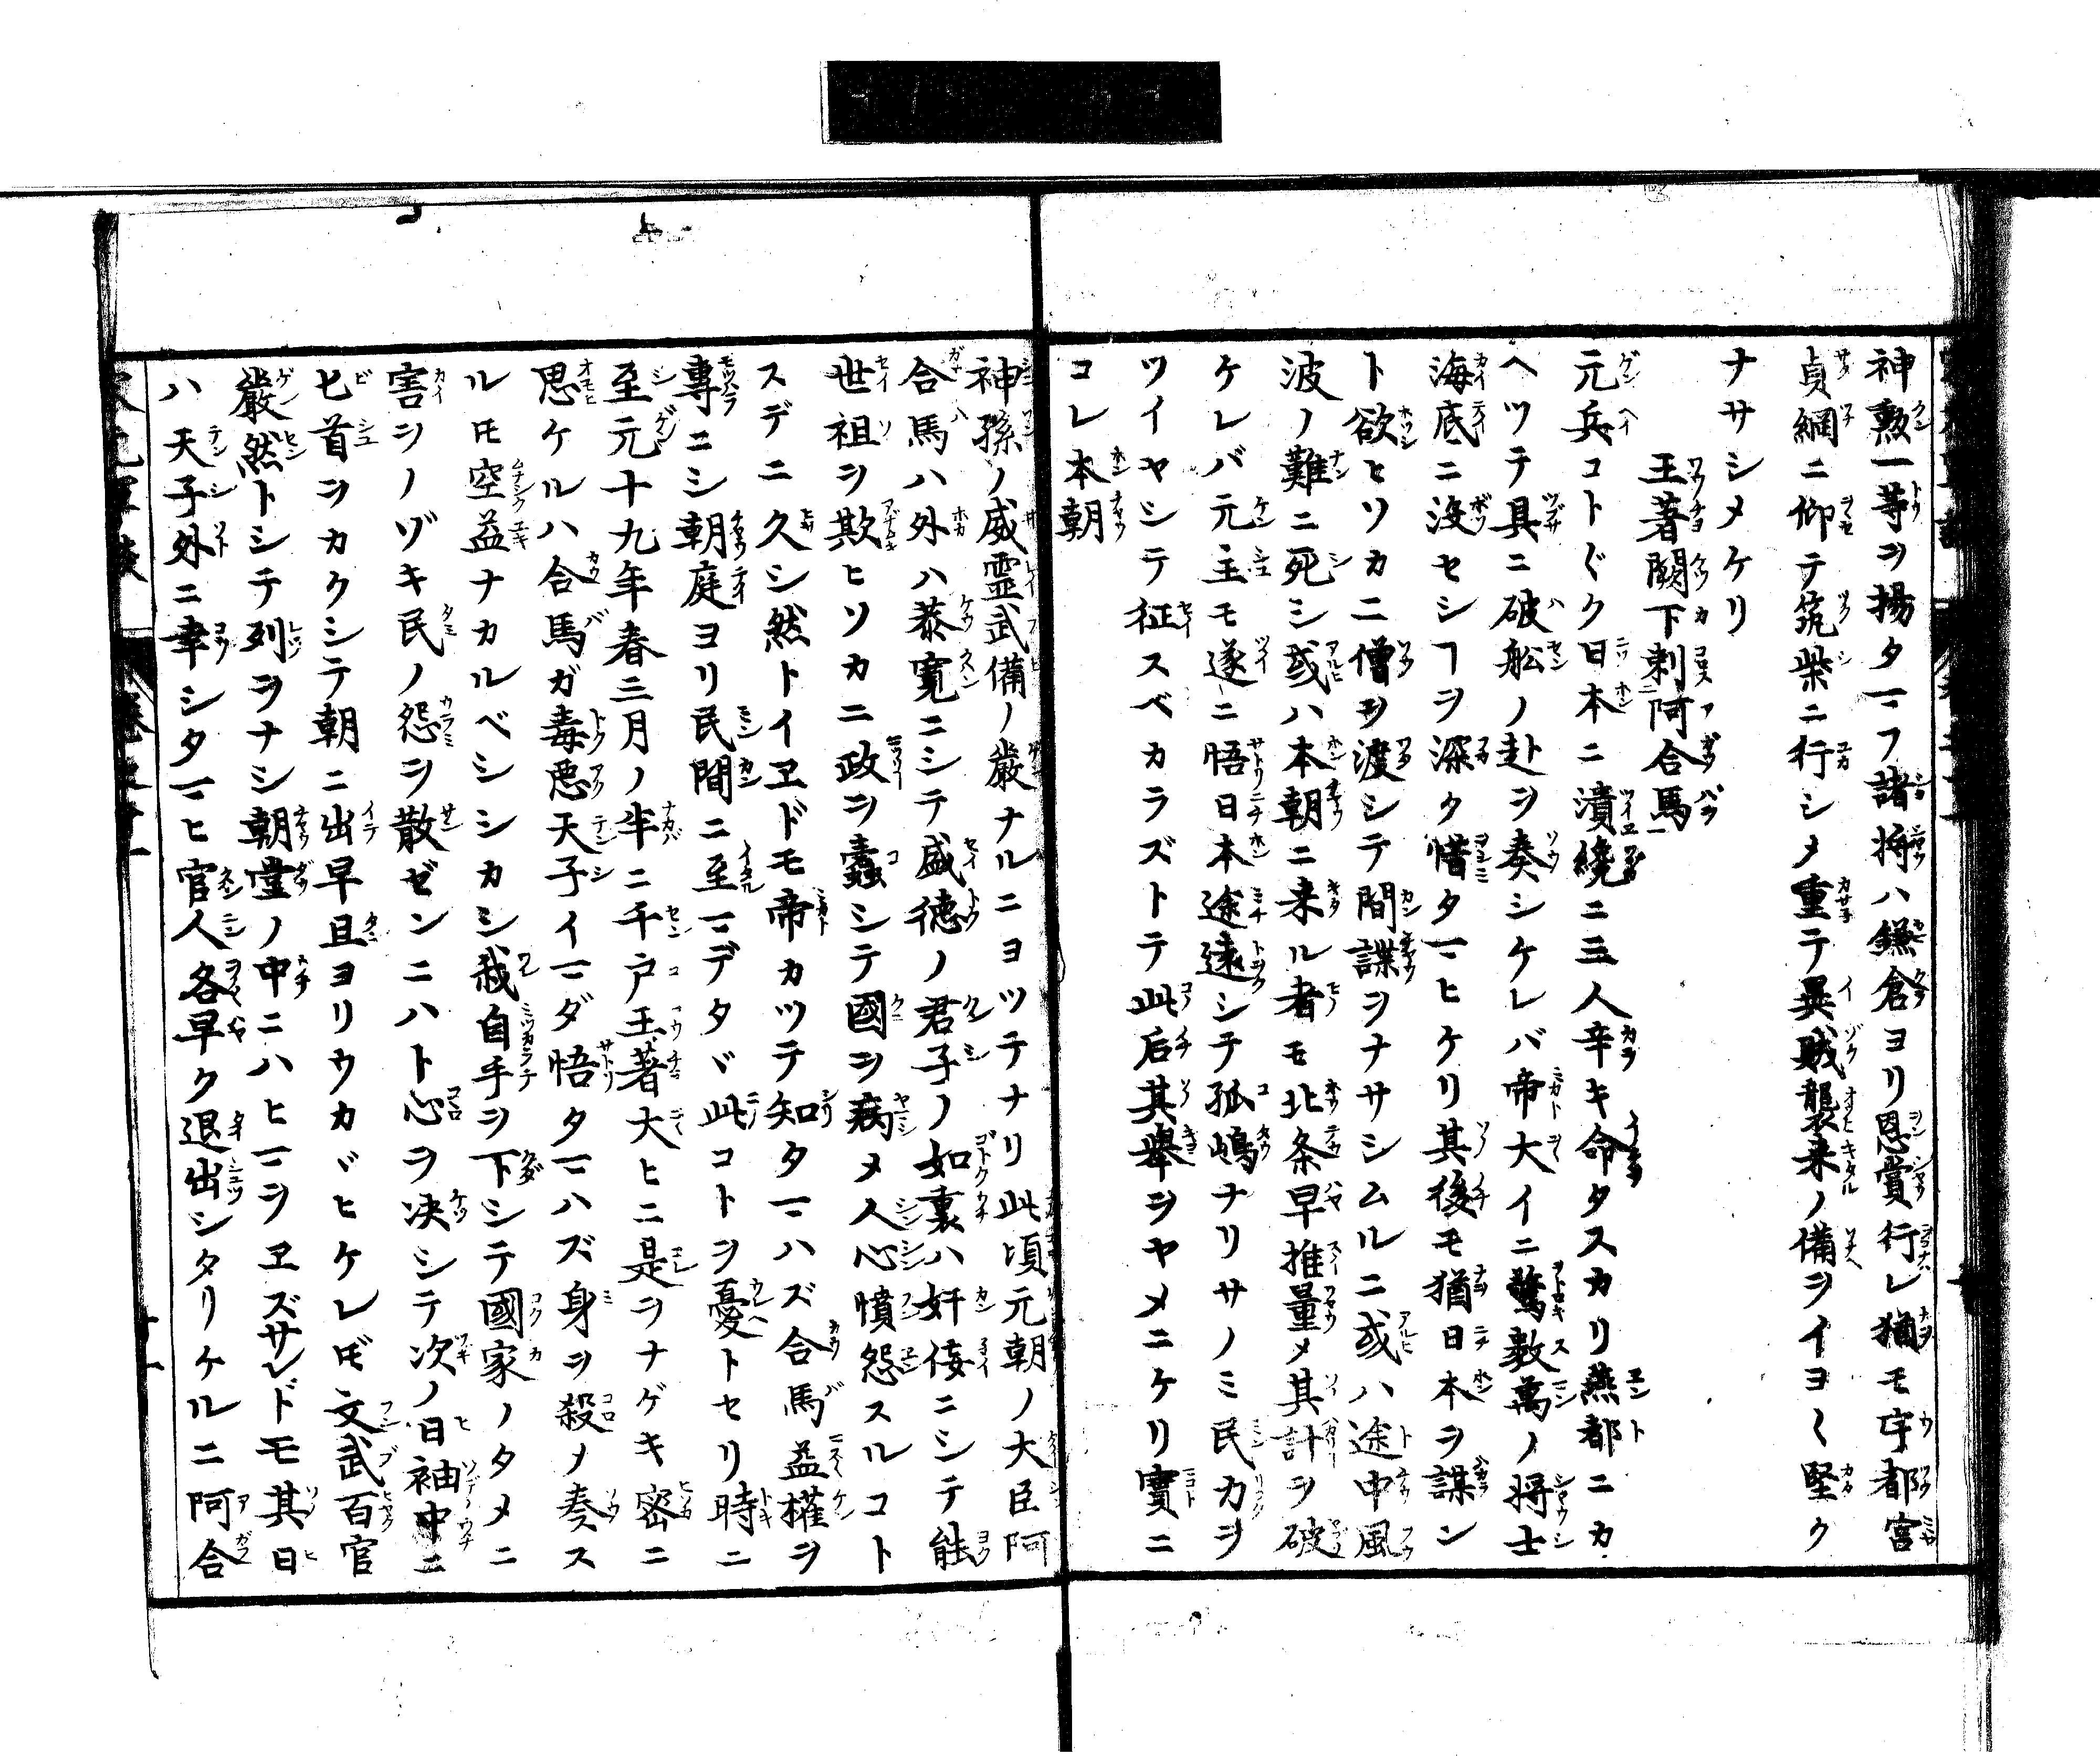 神勲一等ヲ揚タマフ諸将ハ鎌倉ヨリ恩賞行レ猶モ宇都宮
貞綱ニ仰テ筑紫ニ行シメ重テ異賊襲来ノ備ヲイヨ〱堅ク
ナサシメケリ
王著闕下刺阿合馬
元兵コト〲ク日本ニ潰纔ニ三人辛キ命タスカリ燕都ニカ
ヘツテ具ニ破舩ノ赴ヲ奏シケレバ帝大イニ驚数萬ノ将士
海底ニ没セシヿヲ深ク惜タマヒケリ其後モ猶日本ヲ謀ン
ト欲ヒソカニ僧ヲ渡シテ間諜ヲナサシムルニ或ハ途中風
波ノ難ニ死シ或ハ本朝ニ来ル者モ北条早推量メ其計ヲ破
ケレバ元主モ遂ニ悟日本途遠シテ孤嶋ナリサノミ民力ヲ
ツイヤシテ征スベカラズトテ此后其擧ヲヤメニケリ實ニ
コレ本朝
神孫ノ威霊武備ノ厳ナルニヨツテナリ此頃元朝ノ大臣阿
合馬ハ外ハ恭寛ニシテ盛徳ノ君子ノ如裏ハ奸佞ニシテ能
世祖ヲ欺ヒソカニ政ヲ蠹シテ國ヲ病メ人心憤怨スルコト
スデニ久シ然トイヱドモ帝カツテ知タマハズ合馬益權ヲ
專ニシ朝庭ヨリ民間ニ至マデタヾ此コトヲ憂トセリ時ニ
至元十九年春三月ノ半ニ千户王著大ヒニ是ヲナゲキ密ニ
思ケルハ合馬ガ毒悪天子イマダ悟タマハズ身ヲ殺メ奏ス
ルモ空益ナカルベシシカシ我自手ヲ下シテ國家ノタメニ
害ヲノゾキ民ノ怨ヲ散ゼンニハト心ヲ决シテ次ノ日袖中ニ
匕首ヲカクシテ朝ニ出早旦ヨリウカヾヒケレドモ文武百官
嚴然トシテ列ヲナシ朝堂ノ中ニハヒマヲヱズサレドモ其日
ハ天子外ニ幸シタマヒ官人各早ク退出シタリケルニ阿合